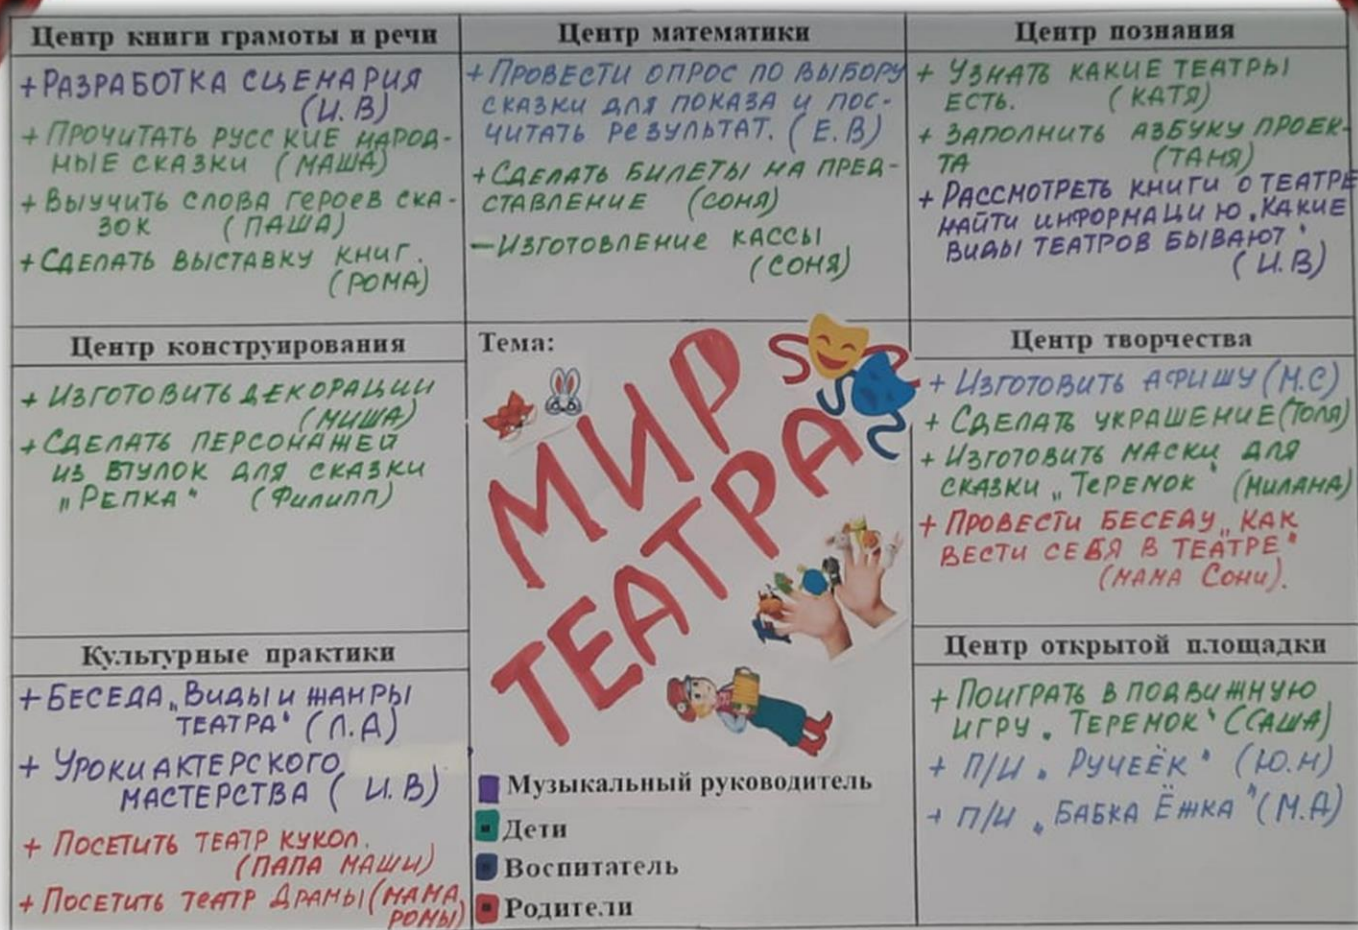 Центр книги грамоты и речи
+ РАЗРАБОТКА СЦЕНАРИЯ
(И.В)
+ ПРОЧИТАТЬ РУССКИЕ НАРОД-
НЫЕ СКАЗКИ (МАША)
+ ВЫУЧИТЬ СЛОВА ГЕРОЕВ СКА-
ЗОК (ПАША)
+ СДЕЛАТЬ ВЫСТАВКУ КНИГ.
(РОМА)
Центр математики
+ ПРОВЕСТИ ОПРОС ПО ВЫБОРУ
СКАЗКИ ДЛЯ ПОКАЗА И ПОС-
ЧИТАТЬ РЕЗУЛЬТАТ. (Е.В)
+ СДЕЛАТЬ БИЛЕТЫ НА ПРЕД-
СТАВЛЕНИЕ (СОНЯ)
- ИЗГОТОВЛЕНИЕ КАССЫ
(СОНЯ)
Центр познания
+ УЗНАТЬ КАКИЕ ТЕАТРЫ
ЕСТЬ. (КАТЯ)
+ ЗАПОЛНИТЬ АЗБУКУ ПРОЕК-
ТА (ТАНЯ)
+ РАССМОТРЕТЬ КНИГИ О ТЕАТРЕ
НАЙТИ ИНФОРМАЦИЮ „КАКИЕ
ВИДЫ ТЕАТРОВ БЫВАЮТ"
(И.В)
Центр конструирования
+ ИЗГОТОВИТЬ ДЕКОРАЦИИ
(МИША)
+ СДЕЛАТЬ ПЕРСОНАЖЕЙ
ИЗ ВТУЛОК ДЛЯ СКАЗКИ
„РЕПКА" (ФИЛИПП)
Тема:
МИР
ТЕАТРА
Центр творчества
+ ИЗГОТОВИТЬ АФИШУ (М.С)
+ СДЕЛАТЬ УКРАШЕНИЕ (ТОЛЯ)
+ ИЗГОТОВИТЬ МАСКИ ДЛЯ
СКАЗКИ „ТЕРЕМОК" (МИЛАНА)
+ ПРОВЕСТИ БЕСЕДУ „КАК
ВЕСТИ СЕБЯ В ТЕАТРЕ"
(МАМА СОНИ).
Культурные практики
+ БЕСЕДА „ВИДЫ И ЖАНРЫ
ТЕАТРА" (Л.Д)
+ УРОКИ АКТЕРСКОГО
МАСТЕРСТВА (И.В)
+ ПОСЕТИТЬ ТЕАТР КУКОЛ.
(ПАПА МАШИ)
+ ПОСЕТИТЬ ТЕАТР ДРАМЫ (МАМА
РОМЫ)
Музыкальный руководитель
Дети
Воспитатель
Родители
Центр открытой площадки
+ ПОИГРАТЬ В ПОДВИЖНУЮ
ИГРУ „ТЕРЕМОК" (САША)
+ П/И „РУЧЕЁК" (Ю.Н)
+ П/И „БАБКА ЁЖКА" (М.А)